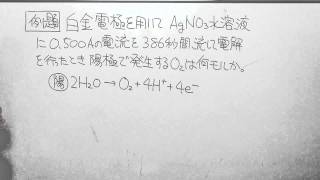 例題 白金電極を用いて AgNO₃水溶液
に0.500Aの電流を386秒間流して電解
を行ったとき陽極で発生するO₂は何モルか。
陽 2H₂O → O₂ + 4H⁺ + 4e⁻